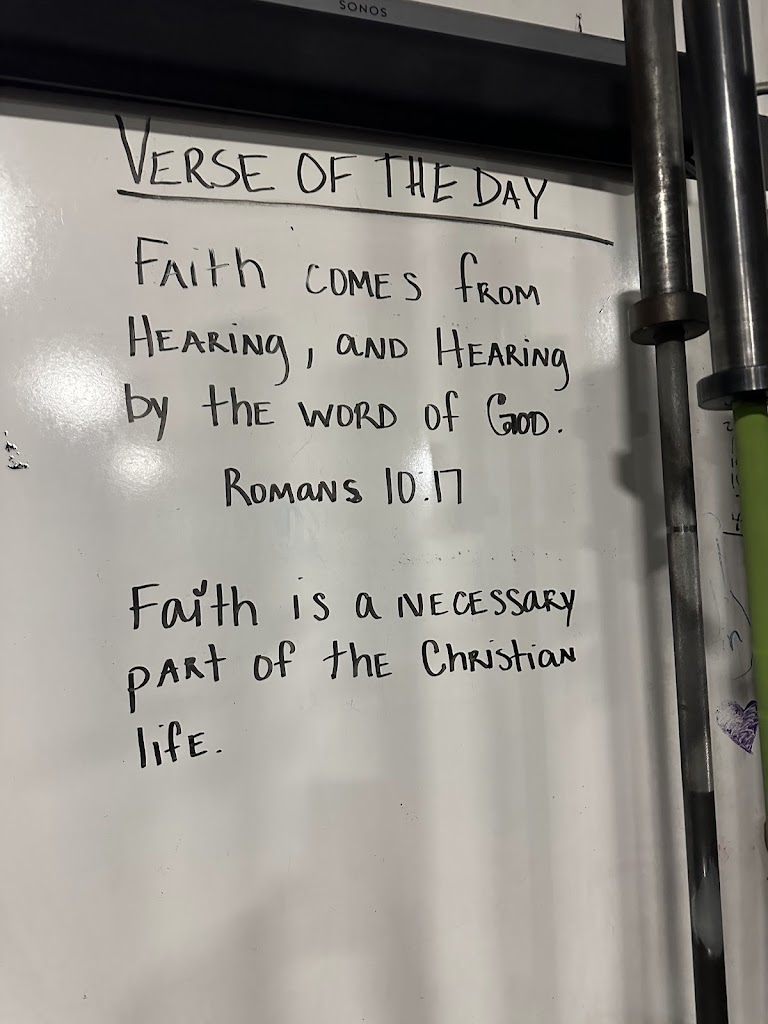 SONOS
VERSE OF THE DAY
FAith COMES fROM
HEARING, AND HEARING
by thE WORD of GOD.
ROMANS 10:17
Faith is a NECESSARY
PART of thE ChRistiaN
lifE.